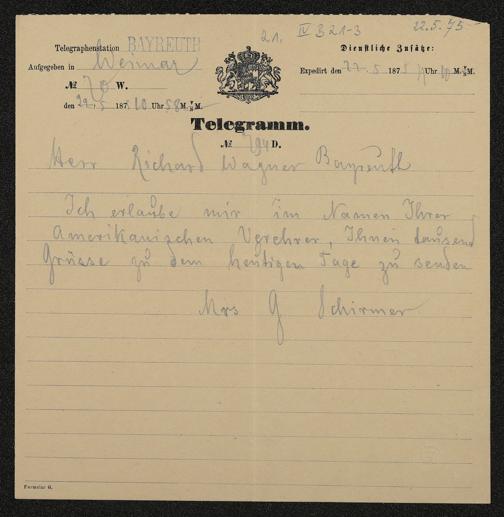 21. IV B 21-3 22.5.75
Telegraphenstation BAYREUTH
Dienstliche Zusätze:
Aufgegeben in Weimar
Expedirt den 22. 5. 187 Uhr M. M.
№ 70 W.
den 22/5 187 10 Uhr 58 M. M.
Telegramm.
№ 794 D.
Herr Richard Wagner Bayreuth
Ich erlaube mir im Namen Ihrer
Amerikanischen Verehrer, Ihnen tausend
Grüsse zu dem heutigen Tage zu senden
Mrs G Schirmer
Formular 6.